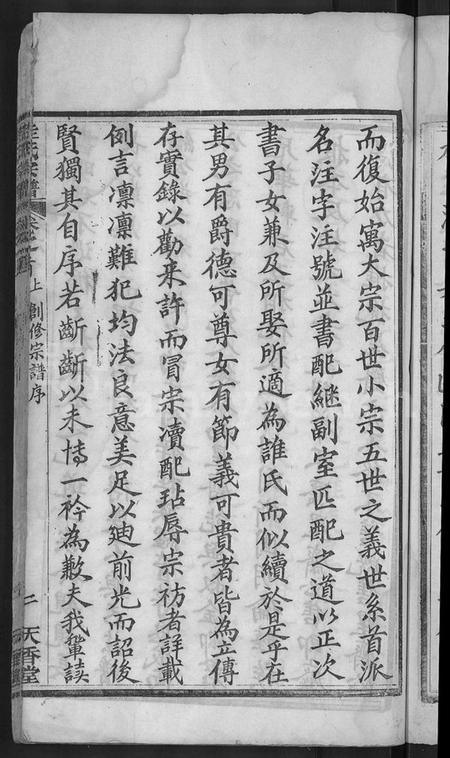 而復始寓大宗百世小宗五世之義世系首派
名注字注號並書配繼副室匹配之道以正次
書子女兼及所娶所適為誰氏而似續於是乎在
其男有爵德可尊女有節義可貴者皆為立傳
存實錄以勸來許而冒宗瀆配玷辱宗祊者詳載
例言凜凜難犯均法良意美足以廸前光而詔後
賢獨其自序若齗齗以未慱一衿為歉夫我輩讀
氏宗譜
卷
上 創修宗譜序
二 天香堂